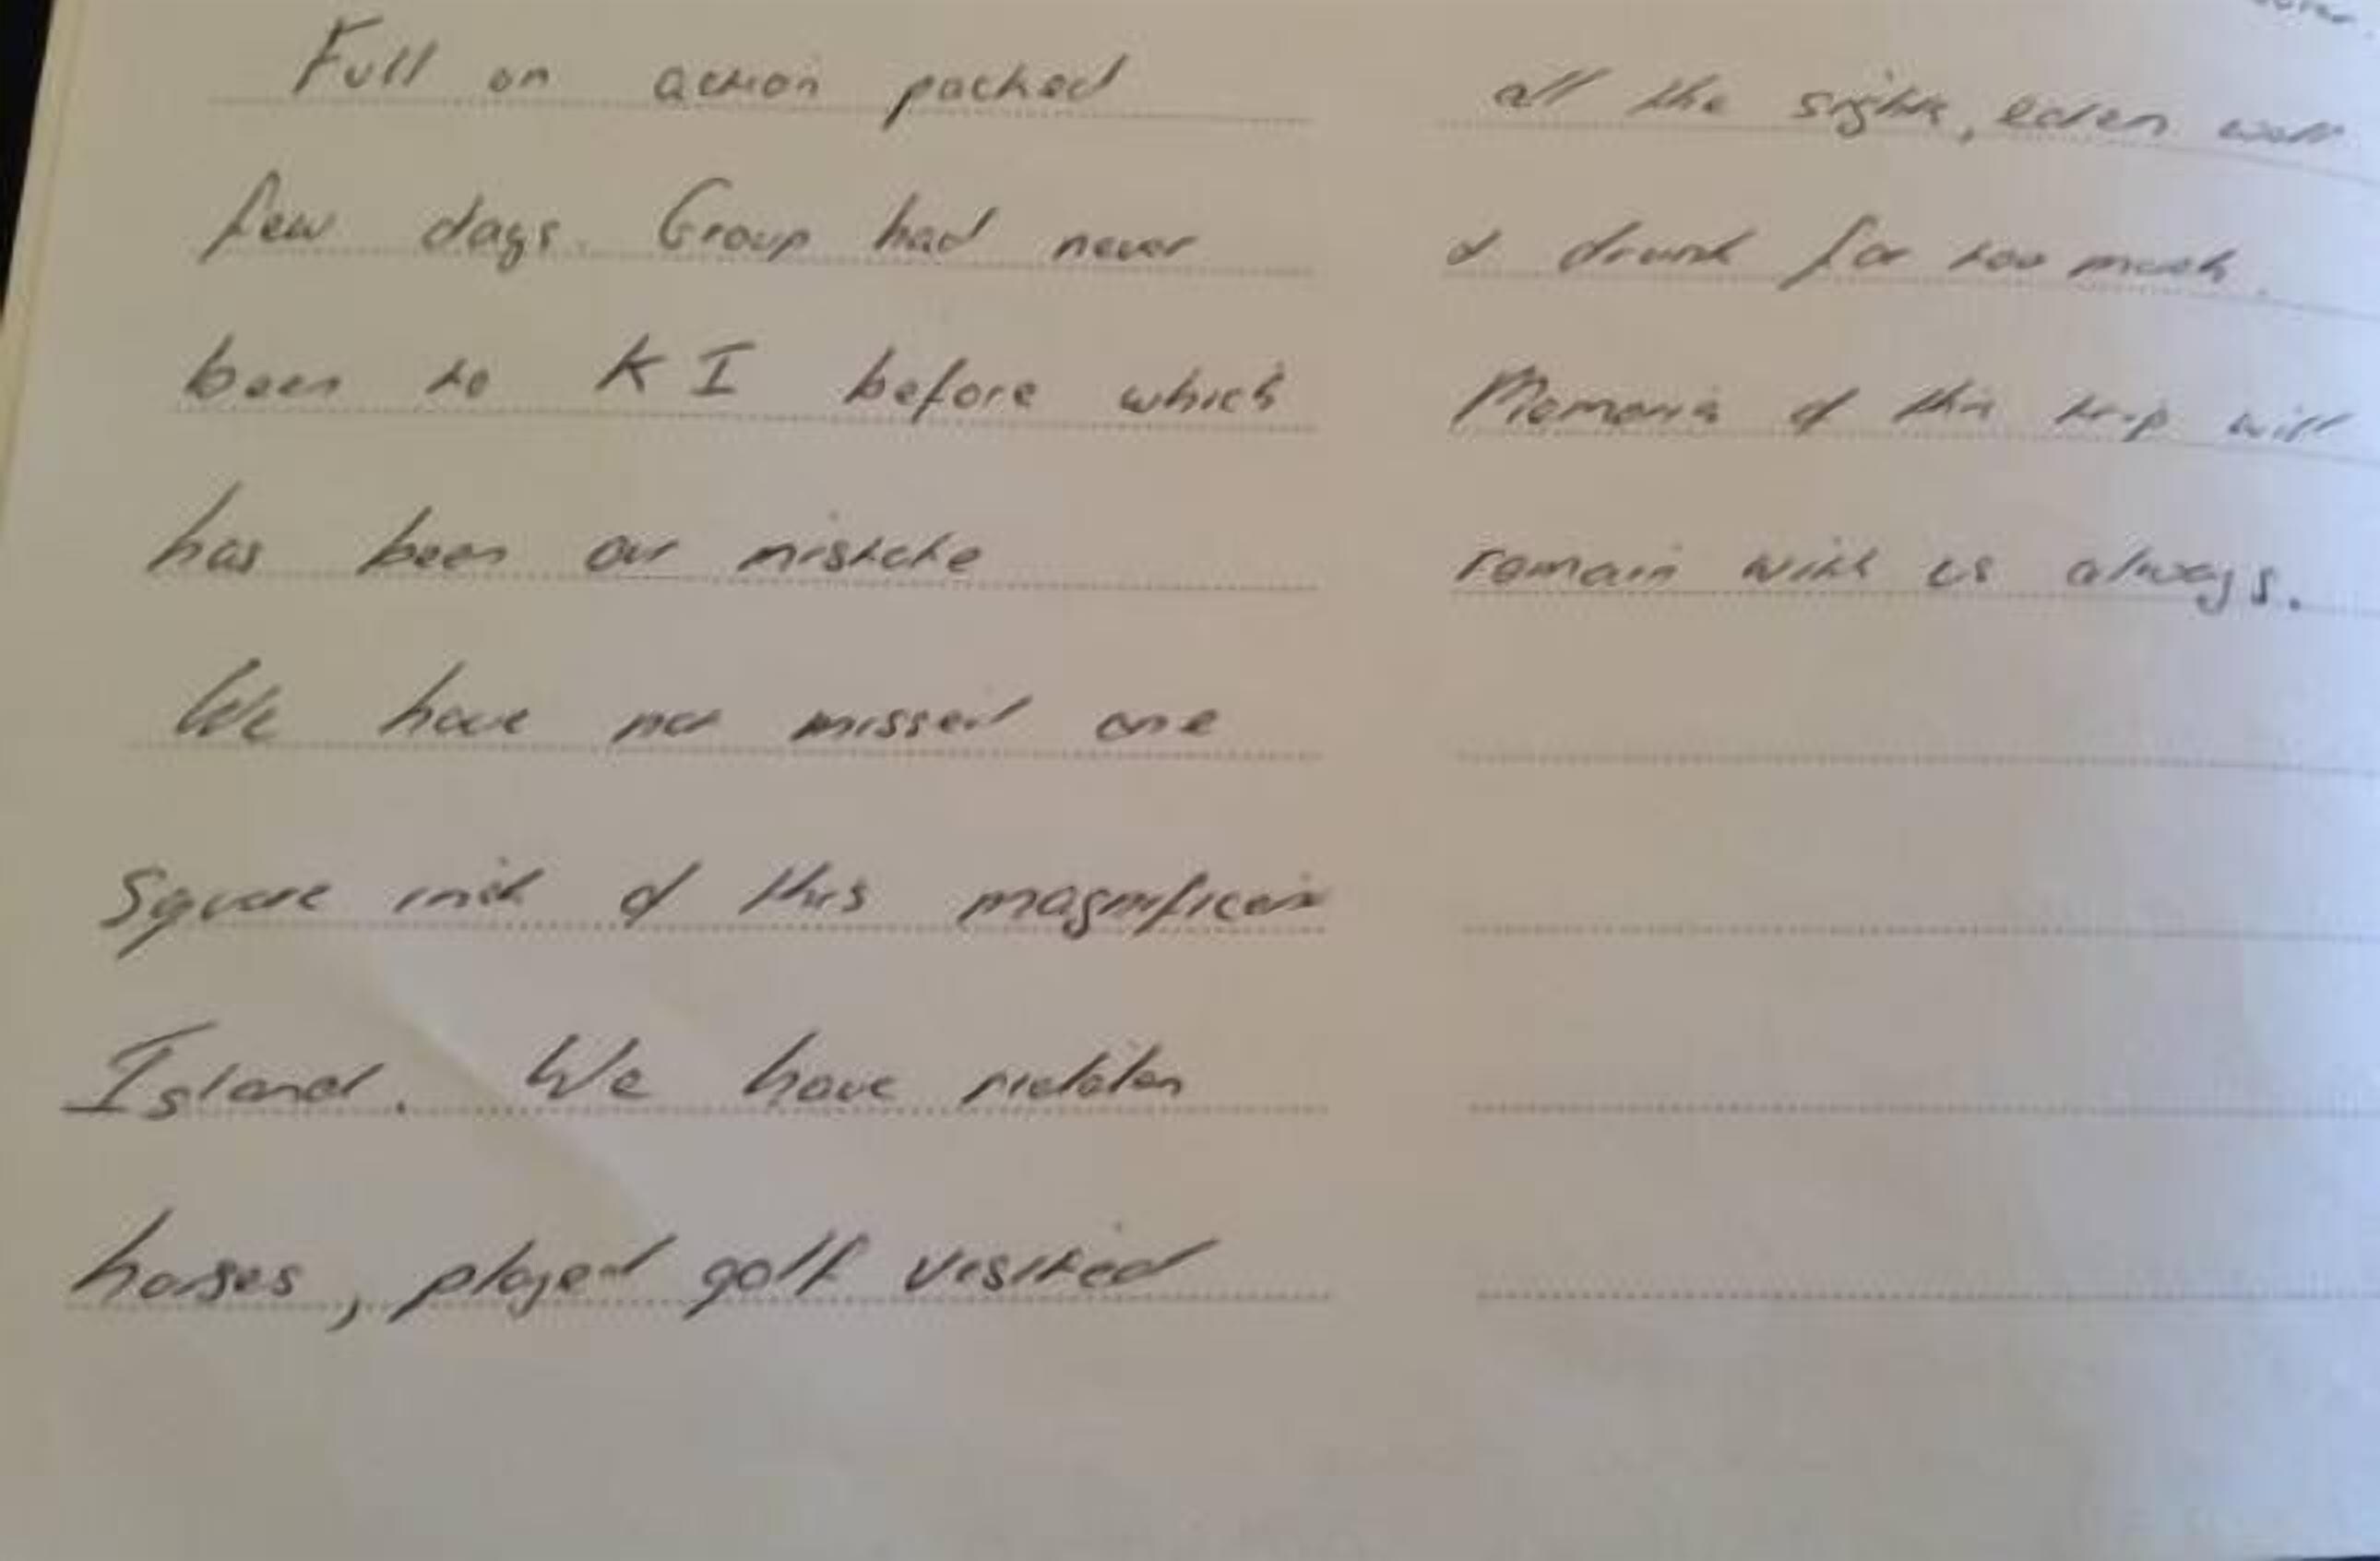 Full on action packed
few days. Group had never
been to KI before which
has been our mistake
We have not missed one
Square inch of this magnificent
Island. We have ridden
horses, played golf visited
all the sights, eaten well
& drunk far too much.
Memories of this trip will
remain with us always.